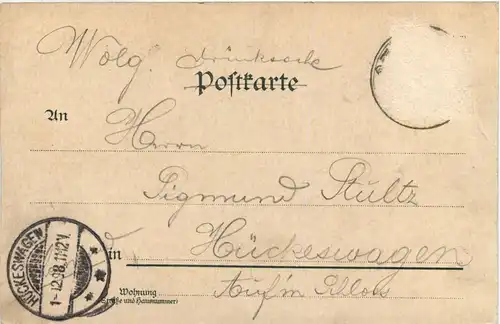 Wolg. Drucksache
Postkarte
An
Herrn
Sigmund Stultz
in Hückeswagen
Wohnung
(Straße und Hausnummer)
Auf'm Schloss
HÜCKESWAGEN
1-12.98.11-12V